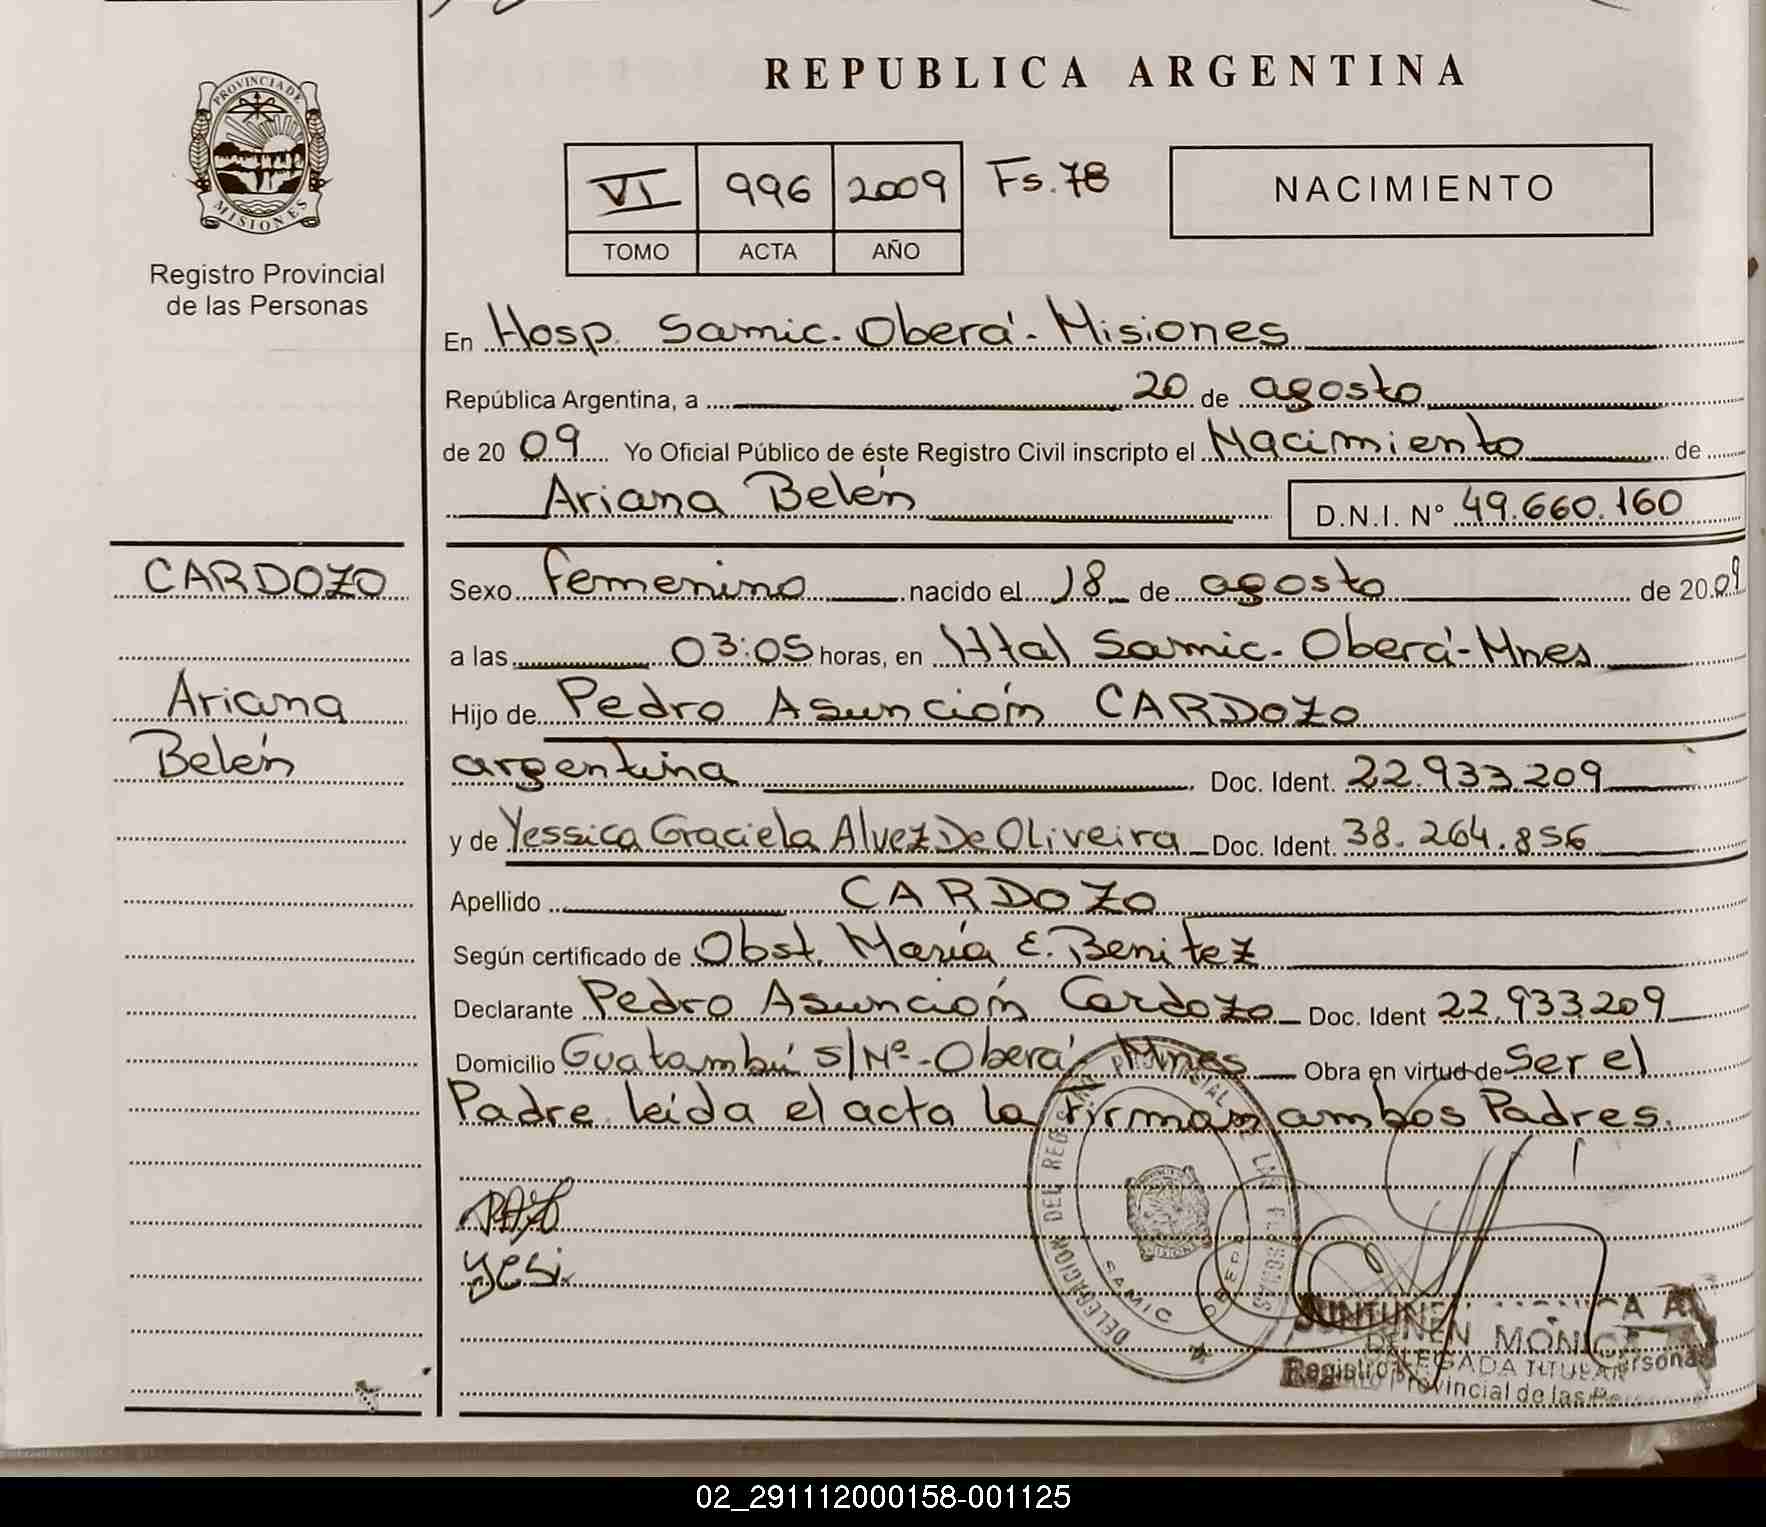 REPUBLICA ARGENTINA
PROVINCIA DE
MISIONES
Registro Provincial
de las Personas
VI 996 2009 Fs. 78
TOMO ACTA AÑO
NACIMIENTO
En Hosp. Samic. Oberá - Misiones
República Argentina, a 20 de agosto
de 20 09 Yo Oficial Público de éste Registro Civil inscripto el Nacimiento de
Ariana Belén D.N.I. N° 49.660.160
CARDOZO
Ariana
Belén
Sexo femenino nacido el 18 de agosto de 20 09
a las 03:05 horas, en Htal Samic. Oberá - Mnes
Hijo de Pedro Asunción CARDOZO
argentina Doc. Ident. 22.933.209
y de Yessica Graciela Alvez De Oliveira Doc. Ident. 38.264.856
Apellido CARDOZO
Según certificado de Obst. María E. Benitez
Declarante Pedro Asunción Cardozo Doc. Ident 22.933.209
Domicilio Guatambú s/Nº - Oberá Mnes Obra en virtud de Ser el
Padre. leída el acta la firman ambos Padres.
Yesi
DELEGACION DEL REG PROVINCIAL DE LAS PERSONAS
SAMIC
MISIONES
MONICA A
DELEGADA TITULAR
Registro Provincial de las Personas
02_291112000158-001125